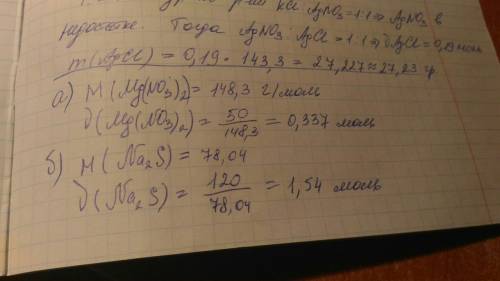 AgNO₃ = 1:1 ⇒ AgNO₃ в
недостатке. Тогда AgNO₃ : AgCl = 1:1 ⇒ ϑAgCl = 0,19 моль
m(AgCl) = 0,19 · 143,3 = 27,227 ≈ 27,23 гр
а) M(Mg(NO₃)₂) = 148,3 г/моль
ϑ(Mg(NO₃)₂) = 50/148,3 = 0,337 моль
б) M(Na₂S) = 78,04
ϑ(Na₂S) = 120/78,04 = 1,54 моль